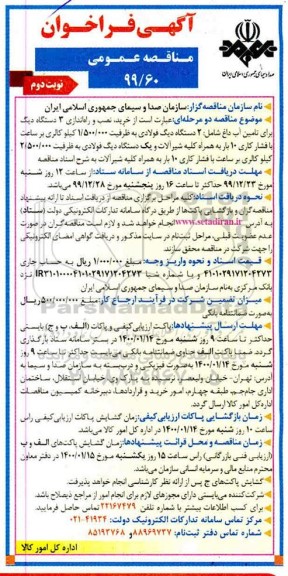 آگهی فراخوان
مناقصه عمومی
۹۹/۶۰
صدا و سیمای جمهوری اسلامی ایران
نوبت دوم
نام سازمان مناقصه‌گزار: سازمان صدا و سیمای جمهوری اسلامی ایران
موضوع مناقصه دو مرحله‌ای: عبارت است از خرید، نصب و راه‌اندازی ۳ دستگاه دیگ
برای تامین آب داغ شامل: ۲ دستگاه دیگ فولادی به ظرفیت ۱/۵۰۰/۰۰۰ کیلو کالری بر ساعت
با فشار کاری ۱۰ بار به همراه کلیه شیرآلات و یک دستگاه دیگ فولادی به ظرفیت ۲/۵۰۰/۰۰۰
کیلو کالری بر ساعت با فشار کاری ۱۰ بار به همراه کلیه شیرآلات به شرح اسناد مناقصه
مهلت دریافت اسناد مناقصه از سامانه ستاد: از ساعت ۱۲ روز شنبه
مورخ ۹۹/۱۲/۲۳ حداکثر تا ساعت ۱۶ روز پنجشنبه مورخ ۹۹/۱۲/۲۸ می‌باشد.
نحوه دریافت اسناد: کلیه مراحل برگزاری مناقصه از دریافت اسناد تا ارائه پیشنهاد
مناقصه‌گران و بازگشایی پاکت‌ها از طریق درگاه سامانه تدارکات الکترونیکی دولت (ستاد)
به آدرس www.setadiran.ir انجام خواهد شد و لازم است مناقصه‌گران در صورت
عدم عضویت قبلی، مراحل ثبت‌نام در سایت مذکور و دریافت گواهی امضای الکترونیکی
را جهت شرکت در مناقصه محقق سازند.
قیمت اسناد و نحوه واریز وجه: مبلغ ۱/۰۰۰/۰۰۰ ریال به حساب جاری
بانک مرکزی به نام سازمان صدا و سیمای جمهوری اسلامی ایران
میزان تضمین شرکت در فرآیند ارجاع کار: مبلغ ۵۰۰/۰۰۰/۰۰۰ ریال
به صورت ضمانتنامه بانکی
مهلت ارسال پیشنهادها: پاکت ارزیابی کیفی و پاکات (الف، ب و ج) بایستی
حداکثر تا ساعت ۹ روز شنبه مورخ ۱۴۰۰/۰۱/۱۴ در بستر سامانه ستاد بارگذاری
گردد. ضمناً پاکت الف حاوی ضمانتنامه بانکی می‌بایست حداکثر تا ساعت ۹ روز
شنبه مورخ ۱۴۰۰/۰۱/۱۴ به صورت فیزیکی و دربسته به سازمان صدا و سیما به
اداره کل امور کالا ارسال گردد.
زمان بازگشایی پاکات ارزیابی کیفی: زمان گشایش پاکات ارزیابی کیفی راس
ساعت ۱۰ روز شنبه مورخ ۱۴۰۰/۰۱/۱۴ در اداره کل امور کالا می‌باشد.
زمان مناقصه و محل قرائت پیشنهادها: زمان گشایش پاکت‌های الف و ب
(ارزیابی فنی بازرگانی) راس ساعت ۱۵ روز یکشنبه مورخ ۱۴۰۰/۰۱/۱۵ در دفتر معاون
محترم منابع مالی و سرمایه انسانی سازمان می‌باشد.
گشایش پاکت‌های ج پس از ارائه نظر کارشناسی انجام خواهد پذیرفت.
شرکت‌کننده می‌بایستی دارای مجوزهای لازم برای انجام امور از مراجع ذیصلاح باشد.
برای کسب اطلاعات بیشتر با شماره تلفن ۲۲۱۶۷۴۷۹ تماس حاصل فرمایید.
مرکز تماس سامانه تدارکات الکترونیک دولت: ۴۱۹۳۴-۰۲۱
شماره تماس دفتر ثبت‌نام: ۸۸۹۶۹۷۳۷ و ۸۵۱۹۳۷۶۸
اداره کل امور کالا